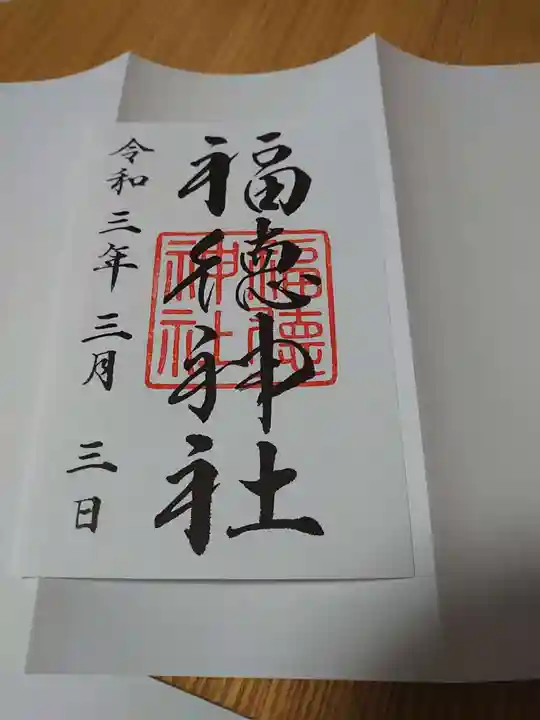 福徳神社
福徳
神社
令和三年三月三日